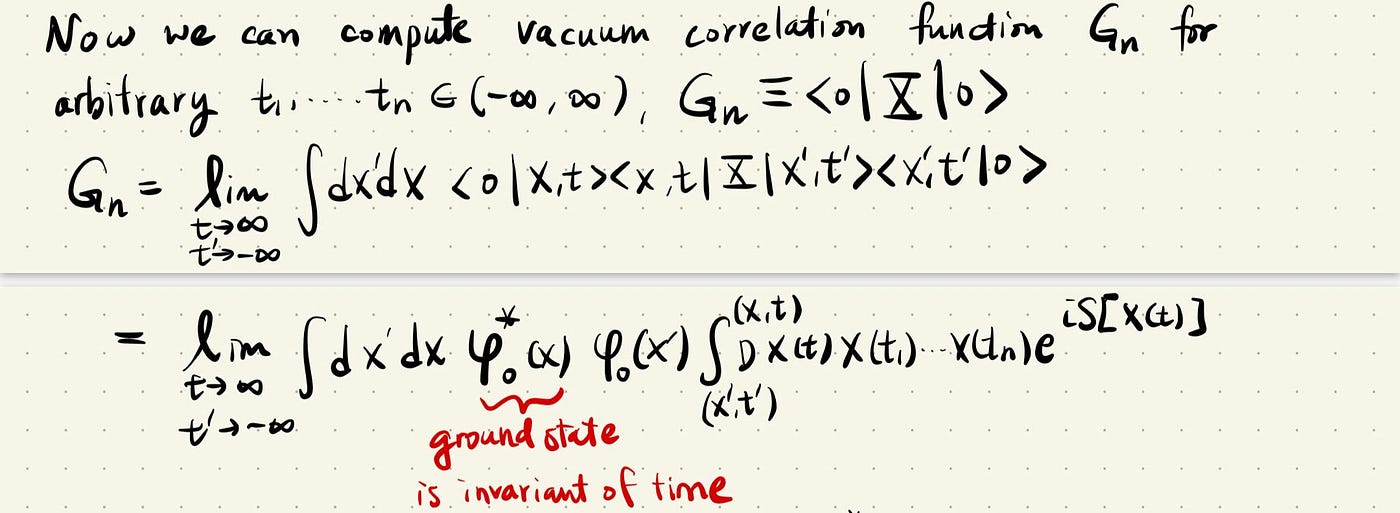 Now we can compute vacuum correlation function Gn for
arbitrary t₁,....tn ∈ (-∞, ∞), Gn ≡ <0|X|0>
Gn = lim ∫dx'dx <0|x,t><x,t|X|x',t'><x',t'|0>
t→∞
t'→-∞
= lim ∫dx'dx φ₀*(x) φ₀(x') ∫ Dx(t) x(t₁)...x(tn) e^{iS[x(t)]}
(x,t)
t→∞
(x',t')
t'→-∞
ground state
is invariant of time